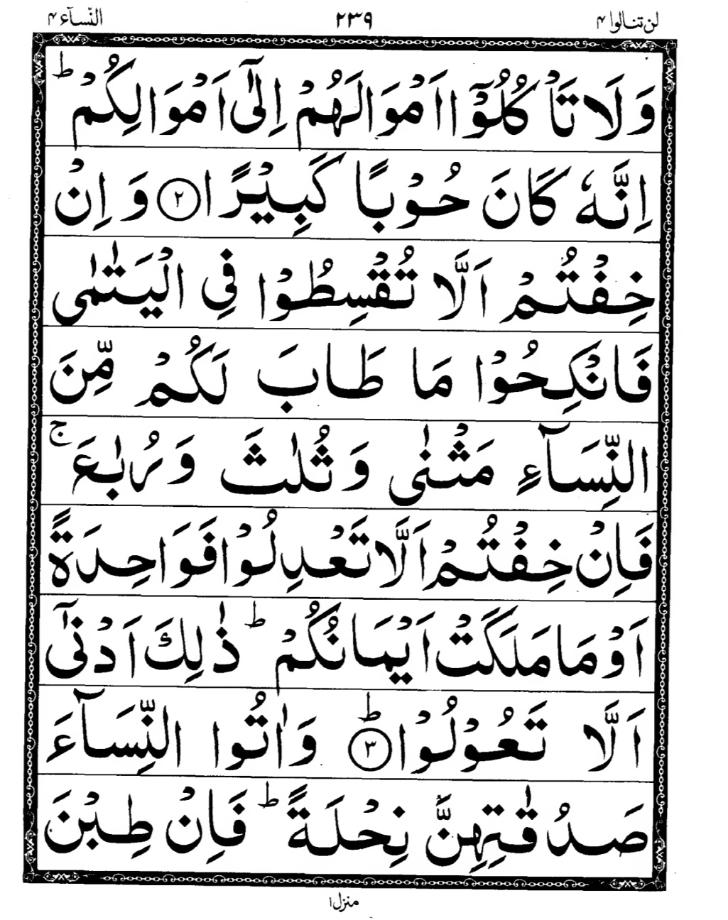 لن تنالوا ۴ ۲۳۹ النّسآء ۴
وَلَا تَاْكُلُوْۤا اَمْوَالَهُمْ اِلٰۤى اَمْوَالِكُمْ ؕ
اِنَّهٗ كَانَ حُوْبًا كَبِيْرًا ۝۲ وَ اِنْ
خِفْتُمْ اَلَّا تُقْسِطُوْا فِي الْيَتٰمٰى
فَانْكِحُوْا مَا طَابَ لَكُمْ مِّنَ
النِّسَآءِ مَثْنٰى وَ ثُلٰثَ وَ رُبٰعَ ۚ
فَاِنْ خِفْتُمْ اَلَّا تَعْدِلُوْا فَوَاحِدَةً
اَوْ مَا مَلَكَتْ اَيْمَانُكُمْ ؕ ذٰلِكَ اَدْنٰۤى
اَلَّا تَعُوْلُوْا ؕ۝۳ وَ اٰتُوا النِّسَآءَ
صَدُقٰتِهِنَّ نِحْلَةً ؕ فَاِنْ طِبْنَ
منزل ۱